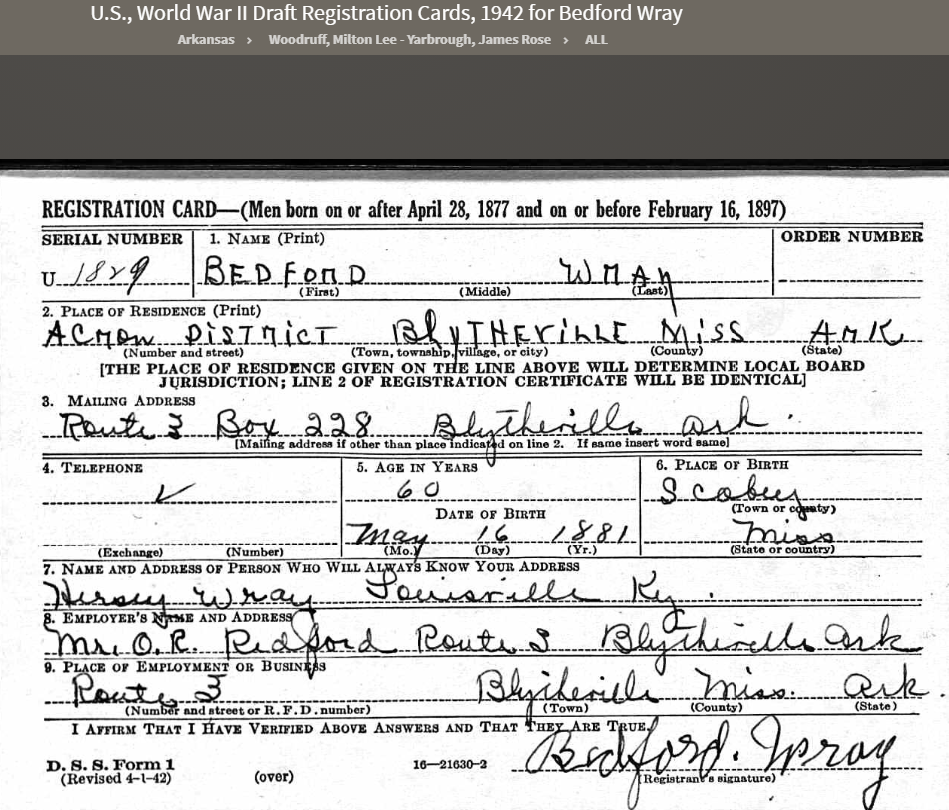 U.S., World War II Draft Registration Cards, 1942 for Bedford Wray
Arkansas > Woodruff, Milton Lee - Yarbrough, James Rose > ALL
REGISTRATION CARD—(Men born on or after April 28, 1877 and on or before February 16, 1897)
SERIAL NUMBER 1. NAME (Print) ORDER NUMBER
U 1829 BEDFORD WRAY
(First) (Middle) (Last)
2. PLACE OF RESIDENCE (Print)
ACRON DISTRICT BlYTHEVILLE MISS ARK
(Number and street) (Town, township, village, or city) (County) (State)
[THE PLACE OF RESIDENCE GIVEN ON THE LINE ABOVE WILL DETERMINE LOCAL BOARD
JURISDICTION; LINE 2 OF REGISTRATION CERTIFICATE WILL BE IDENTICAL]
3. MAILING ADDRESS
Route 3 Box 228 Blytheville Ark.
[Mailing address if other than place indicated on line 2. If same insert word same]
4. TELEPHONE 5. AGE IN YEARS 6. PLACE OF BIRTH
60 Scobey
DATE OF BIRTH (Town or county)
May 16 1881 Miss
(Exchange) (Number) (Mo.) (Day) (Yr.) (State or country)
7. NAME AND ADDRESS OF PERSON WHO WILL ALWAYS KNOW YOUR ADDRESS
Hersey Wray Louisville Ky.
8. EMPLOYER'S NAME AND ADDRESS
Mr. O.R. Redford Route 3 Blytheville Ark
9. PLACE OF EMPLOYMENT OR BUSINESS
Route 3 Blytheville Miss. Ark.
(Number and street or R. F. D. number) (Town) (County) (State)
I AFFIRM THAT I HAVE VERIFIED ABOVE ANSWERS AND THAT THEY ARE TRUE.
Bedford. Wray
D. S. S. Form 1 16—21630-2 (Registrant's signature)
(Revised 4-1-42) (over)